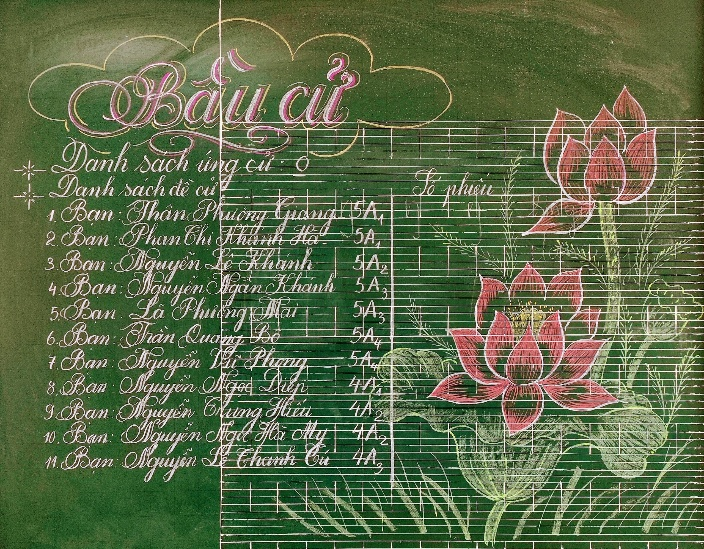 Bầu cử
Danh sách ứng cử: 0
Danh sách đề cử Số phiếu
1. Bạn: Thân Phương Giang 5A1
2. Bạn: Phan Chi Khánh Hà 5A1
3. Bạn: Nguyễn Lê Khanh 5A2
4. Bạn: Nguyễn Ngân Khánh 5A3
5. Bạn: Lã Phương Mai 5A3
6. Bạn: Trần Quang Bộ 5A4
7. Bạn: Nguyễn Phong 5A4
8. Bạn: Nguyễn Ngọc Diệp 4A1
9. Bạn: Nguyễn Trung Hiếu 4A2
10. Bạn: Nguyễn Ngọc Hà My 4A2
11. Bạn Nguyễn Lê Thanh Tú 4A3